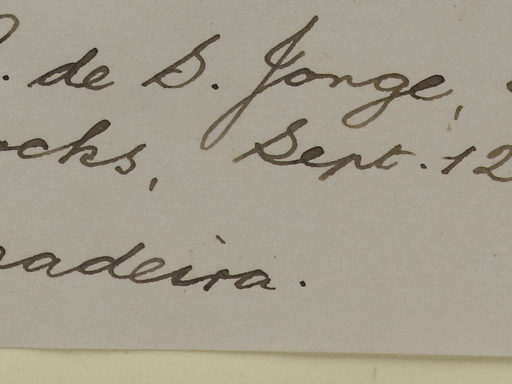 . de S. Jorge,
ocks, Sept. 12
madeira.